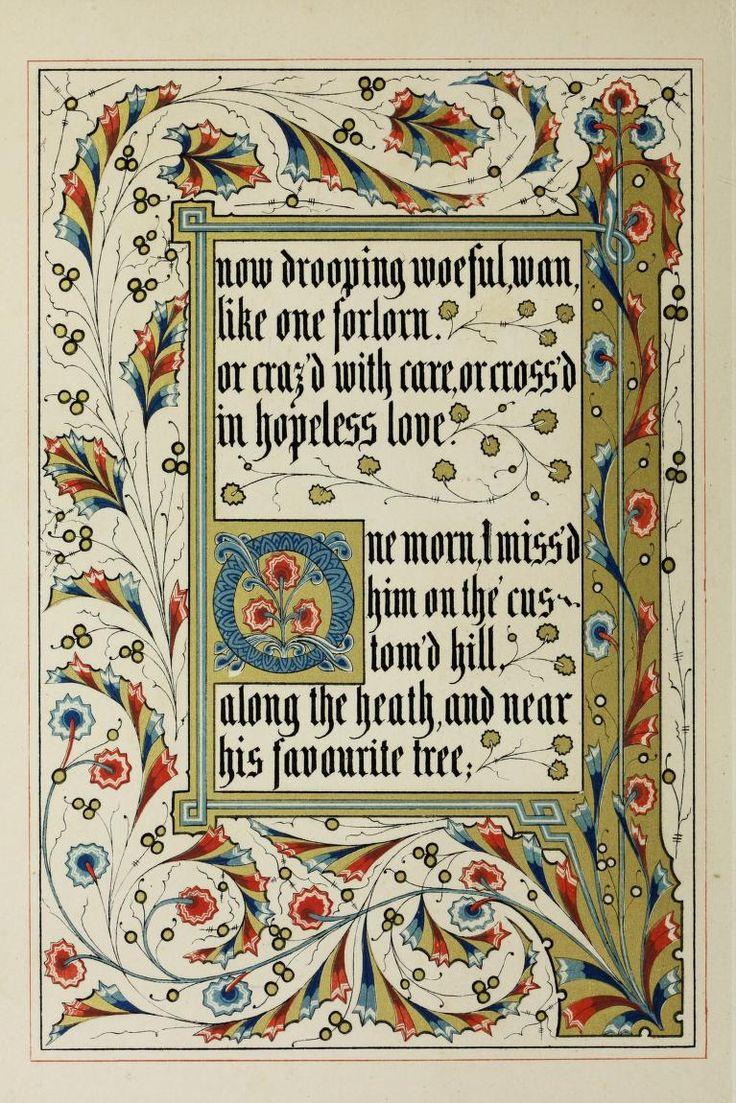 now drooping woeful, wan,
like one forlorn.
or craz'd with care, or cross'd
in hopeless love.
One morn, I miss'd
him on the cus~
tom'd hill,
along the heath, and near
his favourite tree;